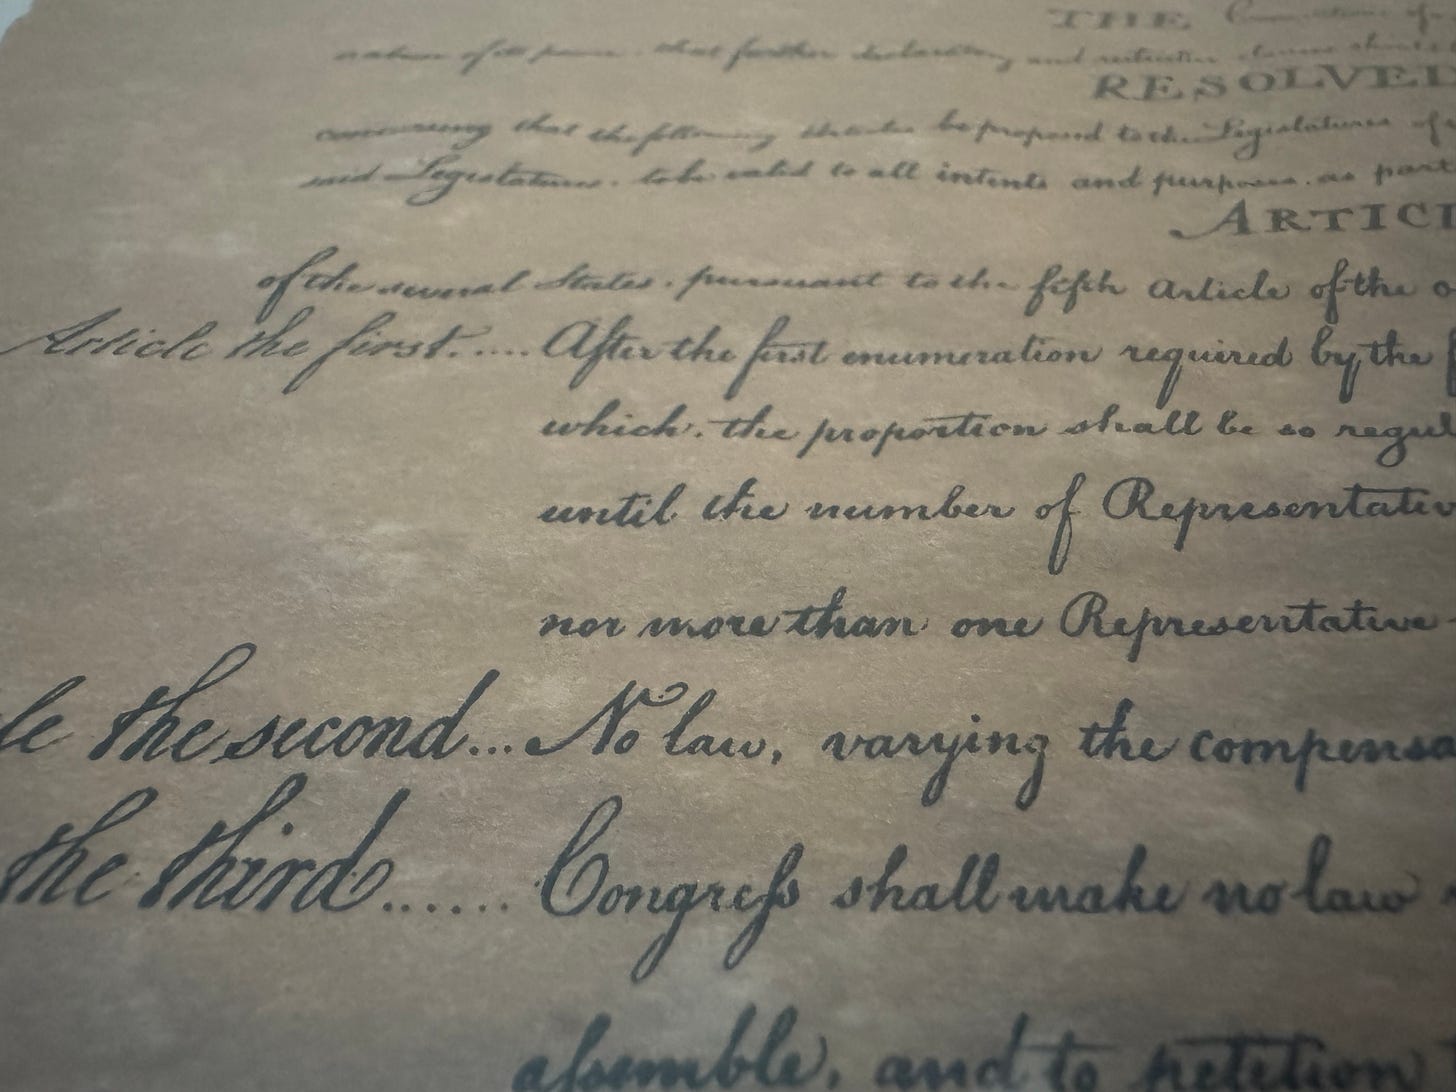 THE Conventions of
nature of its powers, that further declaratory and restrictive clauses should
RESOLVED
concurring that the following Articles be proposed to the Legislatures of
said Legislatures, to be valid to all intents and purposes, as part
ARTICL
of the several States, pursuant to the fifth Article of the o
Article the first..... After the first enumeration required by the
which, the proportion shall be so regul
until the number of Representativ
nor more than one Representative
le the second... No law, varying the compensa
the third...... Congreſs shall make no law
aſsemble, and to petition